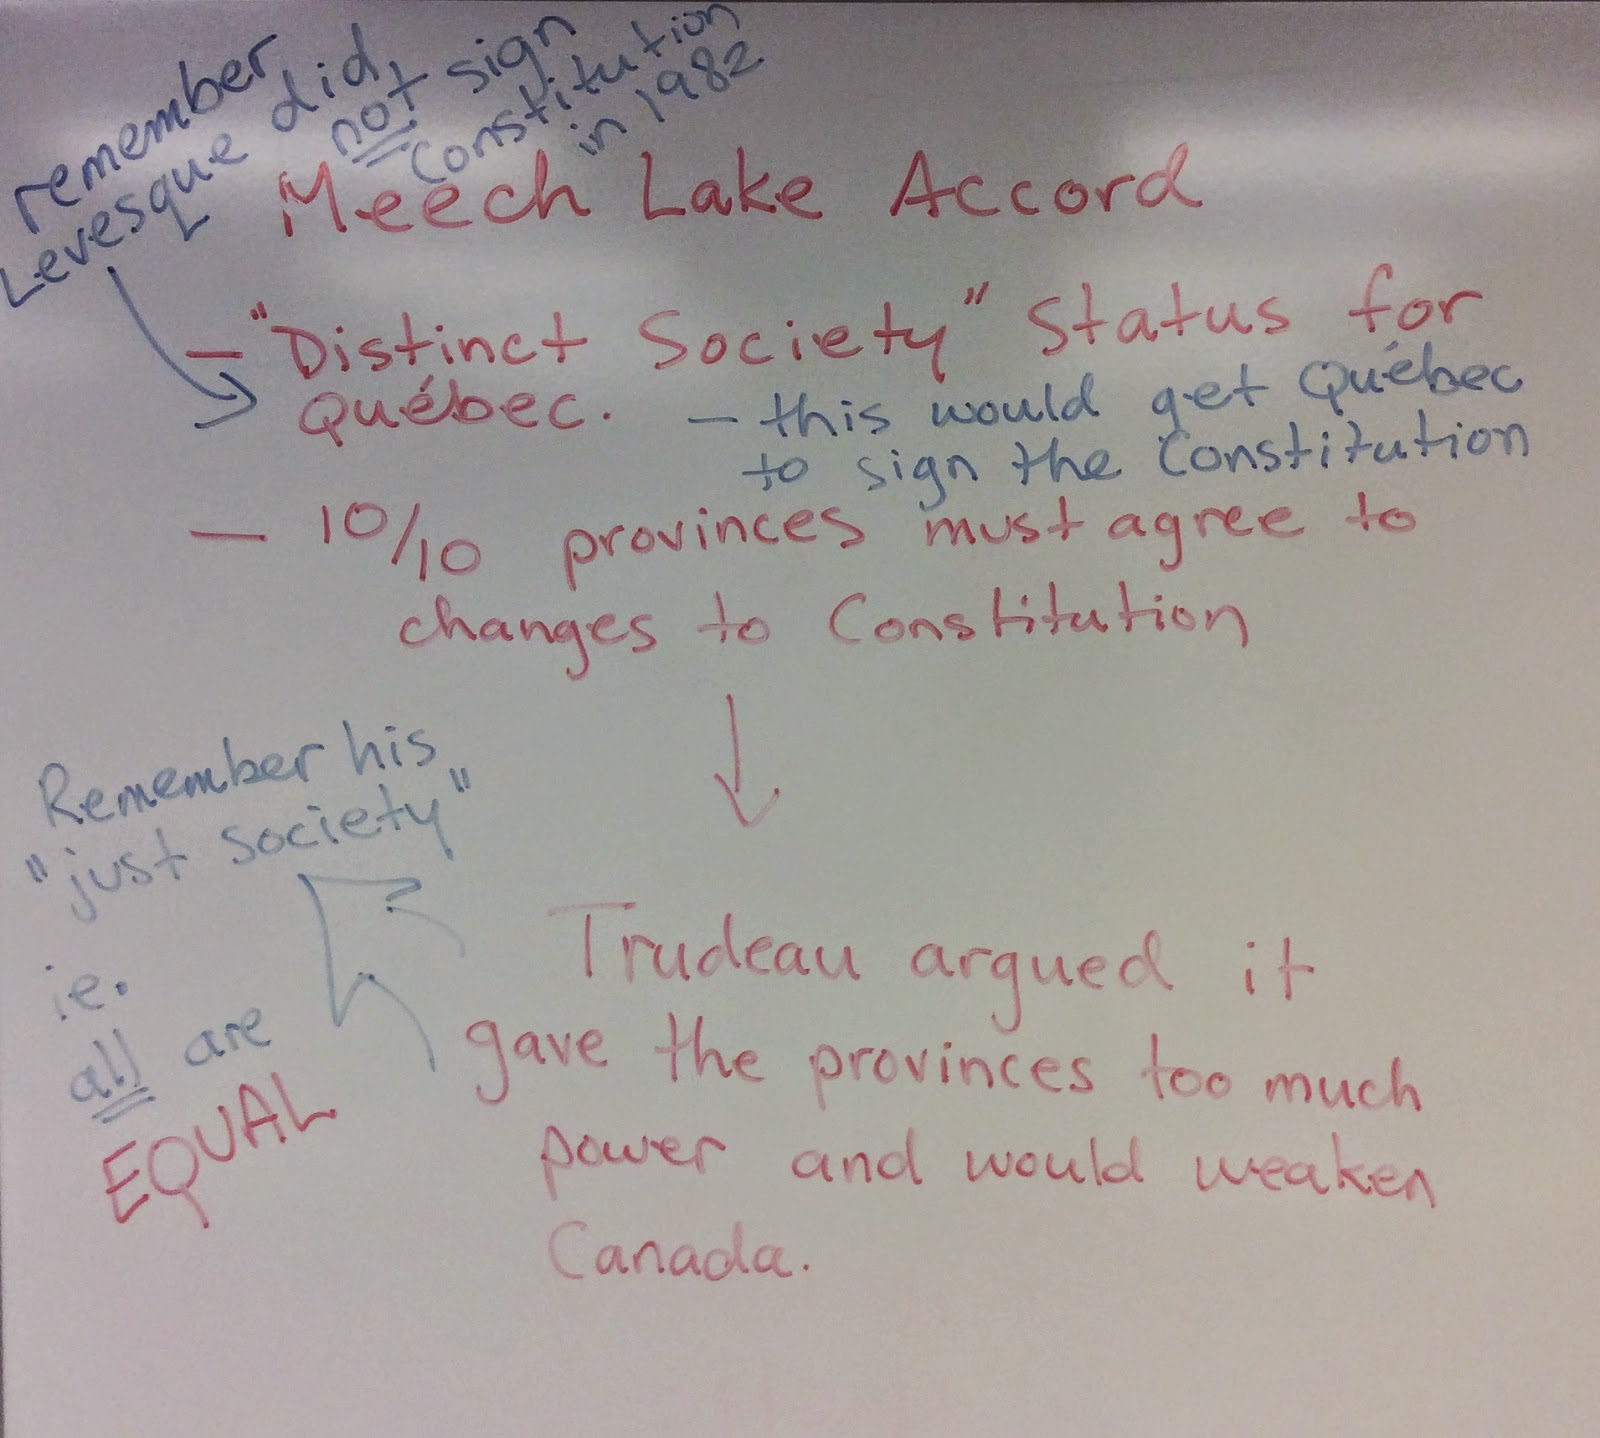 remember
Levesque did
not sign
Constitution
in 1982
Meech Lake Accord
- "Distinct Society" Status for
Québec.
- this would get Québec
to sign the Constitution
- 10/10 provinces must agree to
changes to Constitution
Remember his
"just society"
ie.
all are
EQUAL
Trudeau argued it
gave the provinces too much
power and would weaken
Canada.